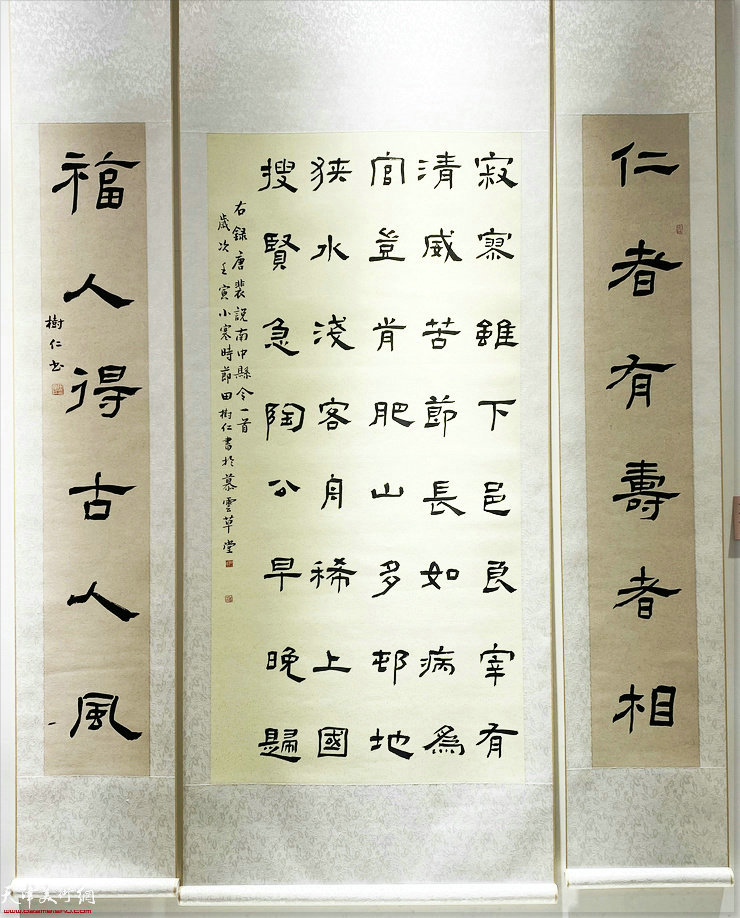 仁者有壽者相
寂寥雖下邑良宰有
清威苦節長如病為
官豈肯肥山多邨地
狹水淺客舟稀上國
搜賢急陶公早晚歸
右錄唐裴說南中縣令一首
歲次壬寅小寒時節田樹仁書於慕雲草堂
福人得古人風
樹仁书
天津美術網